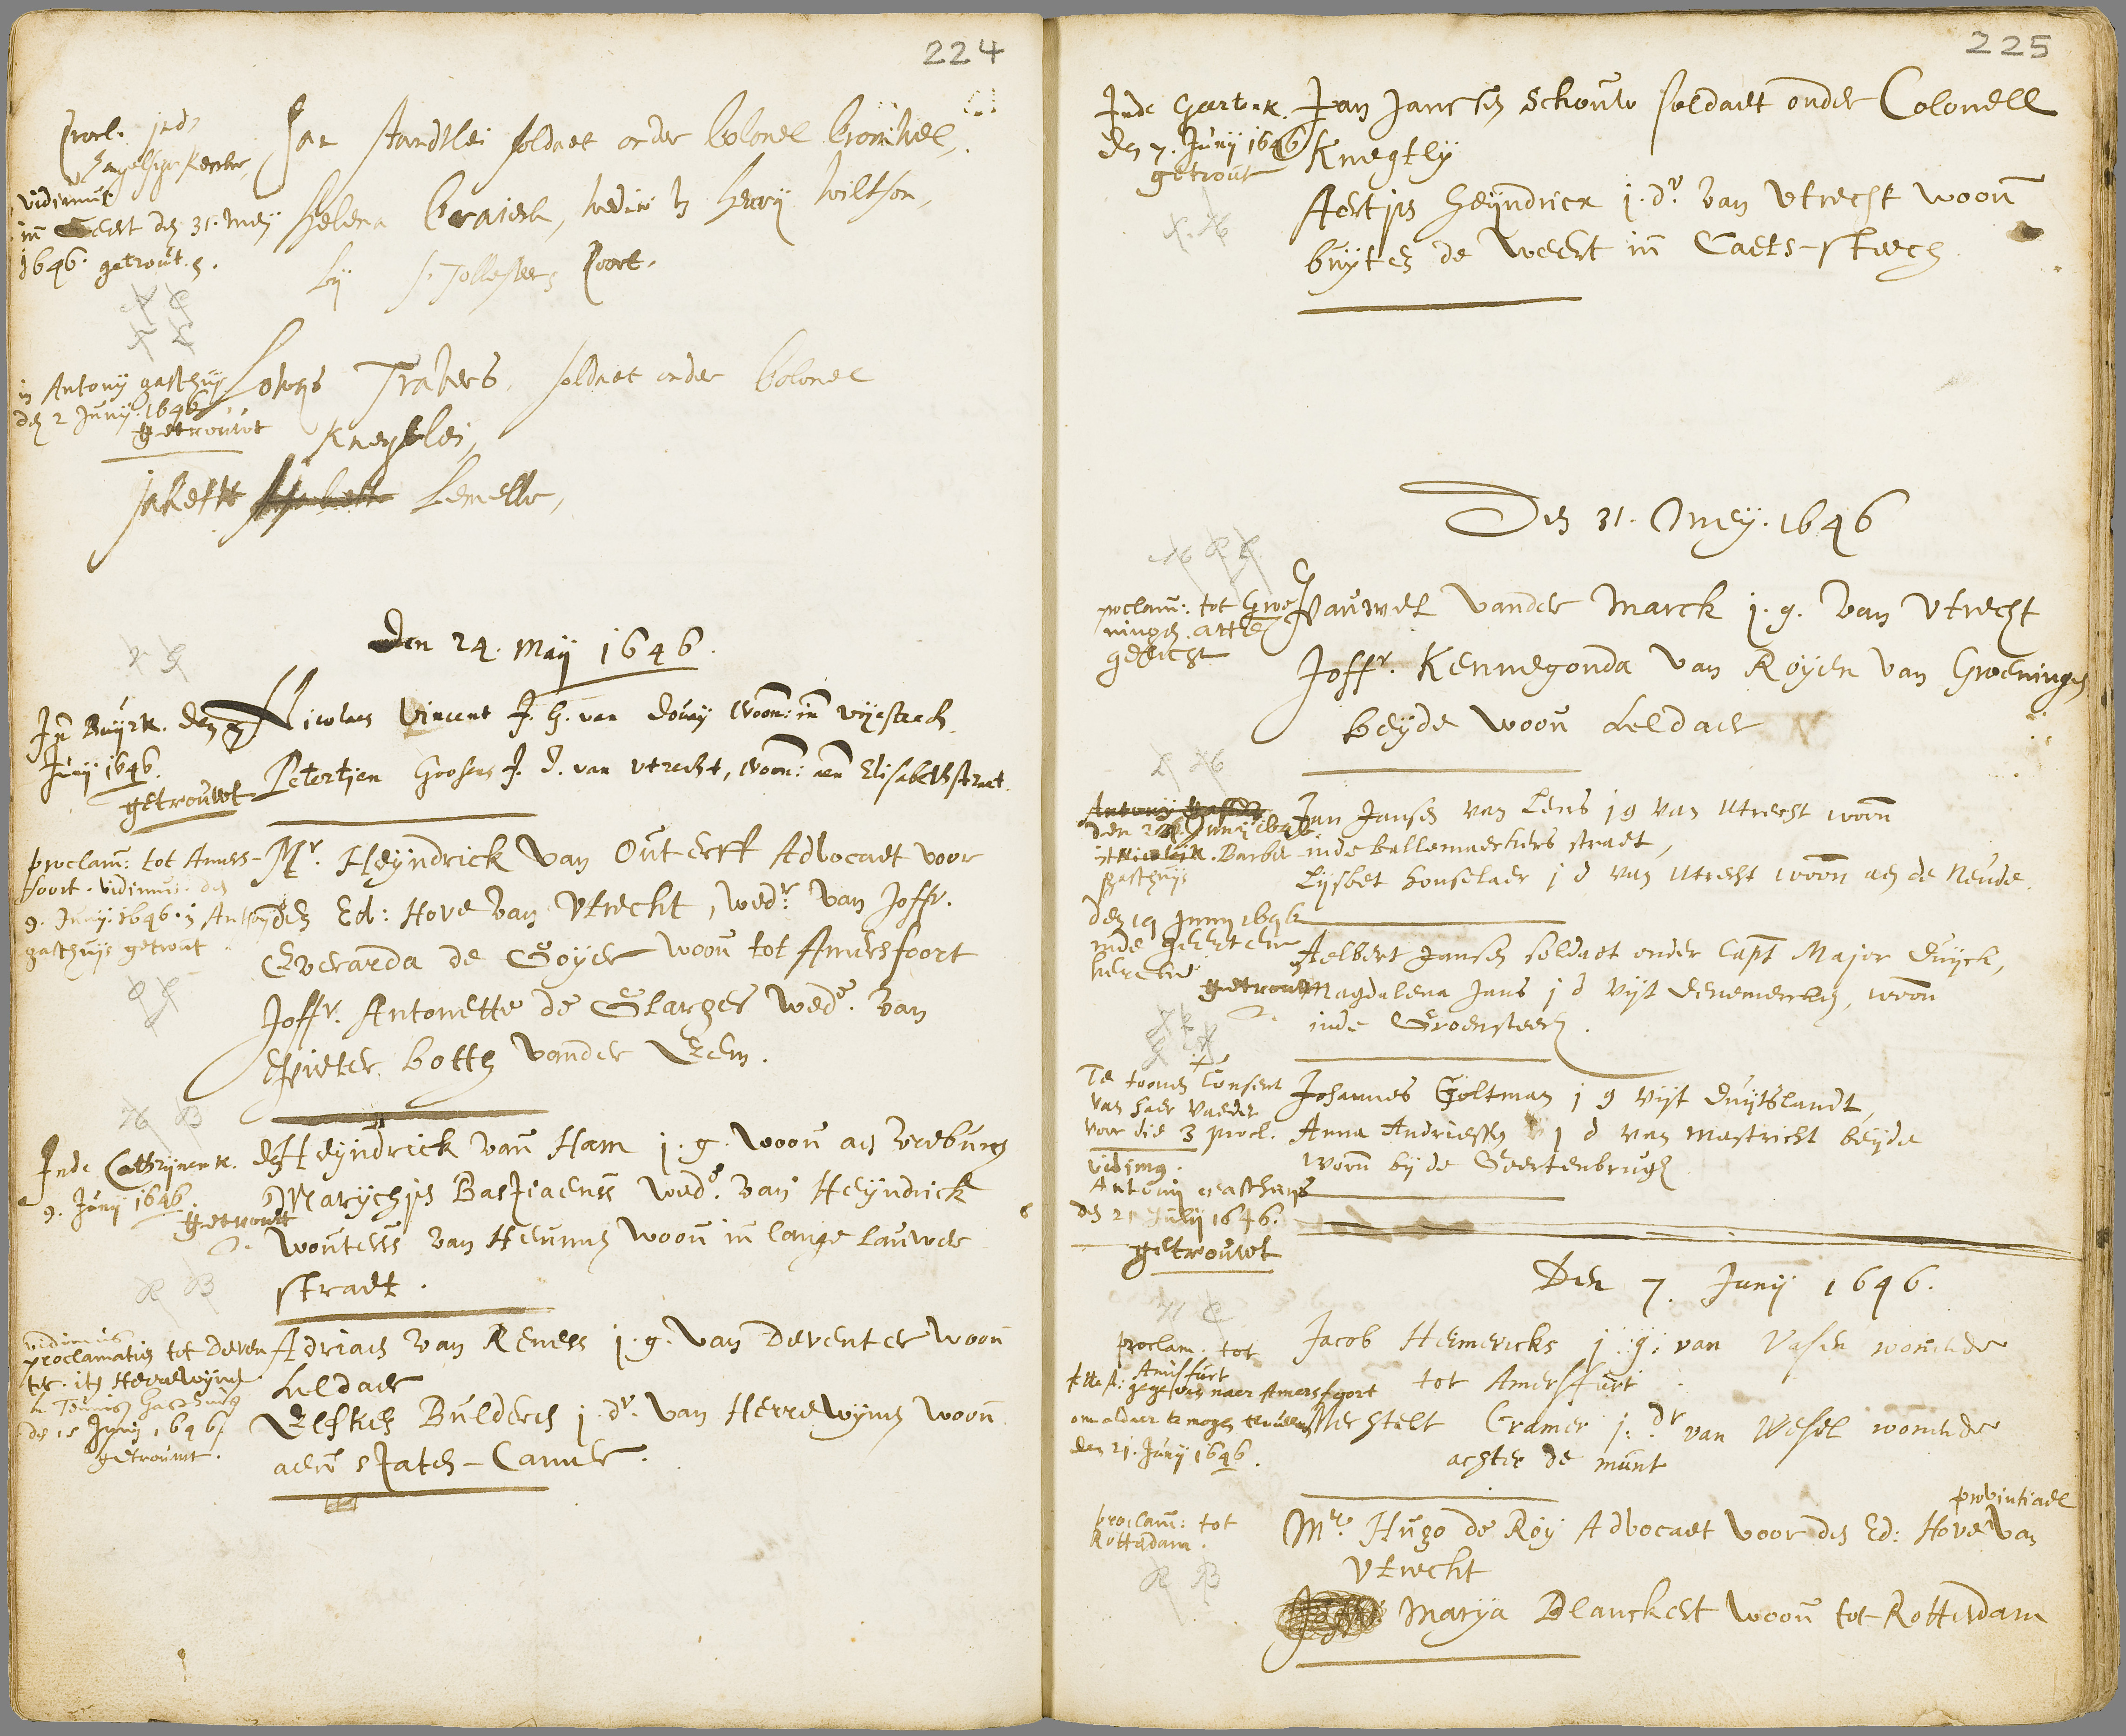 224
Procl. inde
Engelsche Kercke,
vidimus
in Geert den 31. meij
1646. getrout.
Jan Standlei soldaet onder Colonel Cromwel,
Helena Craierk, wedue van Henrij Wiltson,
bij S. Jollesteeg Poort.
in Antonij gasthuijs
den 2 Junij. 1646
getrouwt
Lowijs Travers, soldaet onder Colonel
Kneghtlei,
Jakette Lemelle,
Den 24. May 1646.
In Buyrk. den 7
Junij 1646.
getrouwt
Nicolaes Vincent J. G. van Douay Woon: in vijestech
Petertjen Goosens J. D. van Utrecht, Woon: aen Elisabethstraet.
proclam: tot Amers-
foort. vidimus: den
9. Junij. 1646. in Anthonij
gasthuijs getrout.
Mr. Heyndrick van Outerff Advocaet voor
den Ed: Hove van Utrecht, wedr. van Joffr.
Everarda de Goyer woon tot Amersfoort
Joffr. Antonette de Glarges wede. van
Pieter botth vander Eem.
Inde Cathrijnen K. den
9. Junij 1646.
getrouwt
Heyndrick van Ham j. g. woon aen vreeburg
Marychjs Bastiaenss wede. van Heyndrick
Wouterss van Heumen woon in lange Lauwer
straet.
vidimus
proclamatien tot Deven
ter. itm Herrewijnen
den 15 Junij 1646
getrouwt.
Adriaen van Reness j. g. van Deventer woon
Leldaer
Elsken Bulders j. dr. van Herrewijnen woon
aen Staten-Camer.
225
Inde Geertek.
den 7. Junij 1646
getrout
Jan Janssen Schouw soldaet onder Colonell
Knegtly
Aertjs Heijndricx j. dr. van Utrecht woon
buyten de Weert in Caets-steech
Den 31. Meij. 1646
proclam: tot Groe
ningen. atte
gelicht
Pauwel vander Marck j. g. van Utrecht
Joffr. Kennegonda van Royen van Groeningen
beyde woon Leldaer
den 24 Junij 1646
Barber
gasthuijs
Jan Jansen van Lens j g van Utrecht woon
inde ballemaeckers straet,
Lijsbet Honselaer j d van Utrecht woon aen de Neude.
den 19 Junij 1646
inde geerteen
kercke
getrout
Aelbert Jansen soldaet onder Capt Major Duijck,
Magdalena Jans j d vijt Denemercken, woon
inde Groensteech.
Te toonen Consent
van haer vaeder
voor die 3 procl.
vidimus.
Antonij gasthuijs
den 21 Julij 1646.
getrouwt
Johannes Goltman j g vijt Duijtslandt,
Anna Andriessen j d van Mastricht beijde
woon bij de Geertenbrugh
Den 7. Junij 1646.
proclam. tot
Amisfurt
attest: gegeven naer Amersfoort
om aldaer te mogen trouwen
den 21. Junij 1646.
Jacob Hermericks j. g. van Vasen wonende
tot Amersfurt
Merstelt Cramer j. dr van Wesel wonende
achter de munt
proclam: tot
Rotterdam.
provintiael
Mr. Hugo de Roy Advocaet voor den Ed: Hove van
Utrecht
Marya Blanckert woon tot Rotterdam